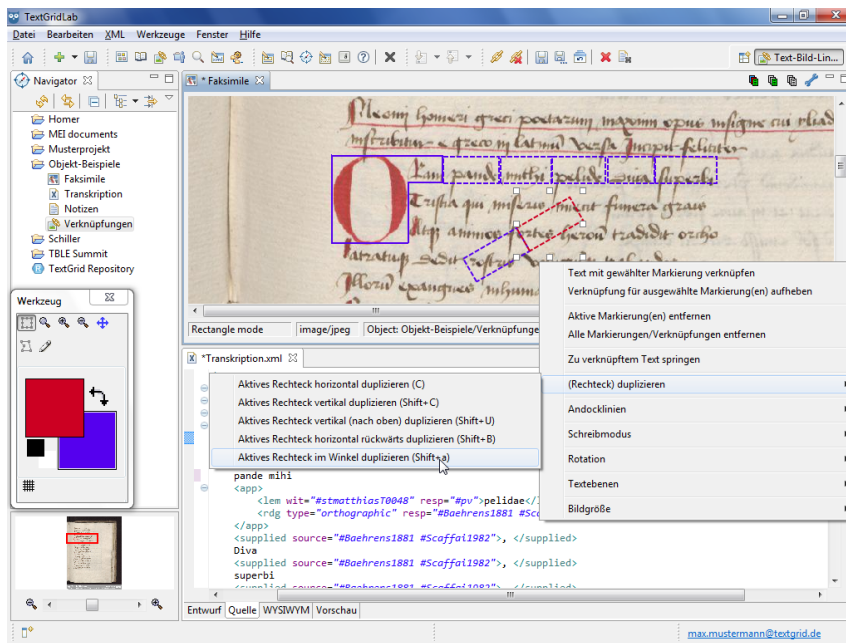 TextGridLab
Datei Bearbeiten XML Werkzeuge Fenster Hilfe
Text-Bild-Lin...
Navigator
Homer
MEI documents
Musterprojekt
Objekt-Beispiele
Faksimile
Transkription
Notizen
Verknüpfungen
Schiller
TBLE Summit
TextGrid Repository
* Faksimile
homeri greci poetarum maximi opus insigne
greco in latinu versa Incipit feliciter
pande mihi pelide superbi
Tristia qui miseris funera grais
Atqz animos fortes herou tradidit orcho
Rectangle mode
image/jpeg
Object: Objekt-Beispiele/Verknüpfunge
Text mit gewählter Markierung verknüpfen
Verknüpfung für ausgewählte Markierung(en) aufheben
Aktive Markierung(en) entfernen
Alle Markierungen/Verknüpfungen entfernen
Zu verknüpftem Text springen
(Rechteck) duplizieren
Andocklinien
Schreibmodus
Rotation
Textebenen
Bildgröße
Werkzeug
*Transkription.xml
Aktives Rechteck horizontal duplizieren (C)
Aktives Rechteck vertikal duplizieren (Shift+C)
Aktives Rechteck vertikal (nach oben) duplizieren (Shift+U)
Aktives Rechteck horizontal rückwärts duplizieren (Shift+B)
Aktives Rechteck im Winkel duplizieren (Shift+a)
pande mihi
<app>
<lem wit="#stmatthiasT0048" resp="#pv">pelidae</
<rdg type="orthographic" resp="#Baehrens1881 #Sc
</app>
<supplied source="#Baehrens1881 #Scaffai1982">, </supplied>
Diva
<supplied source="#Baehrens1881 #Scaffai1982">, </supplied>
superbi
<supplied source="#Baehrens1881 #Scaffai1982">, </supplied>
Entwurf Quelle WYSIWYM Vorschau
max.mustermann@textgrid.de